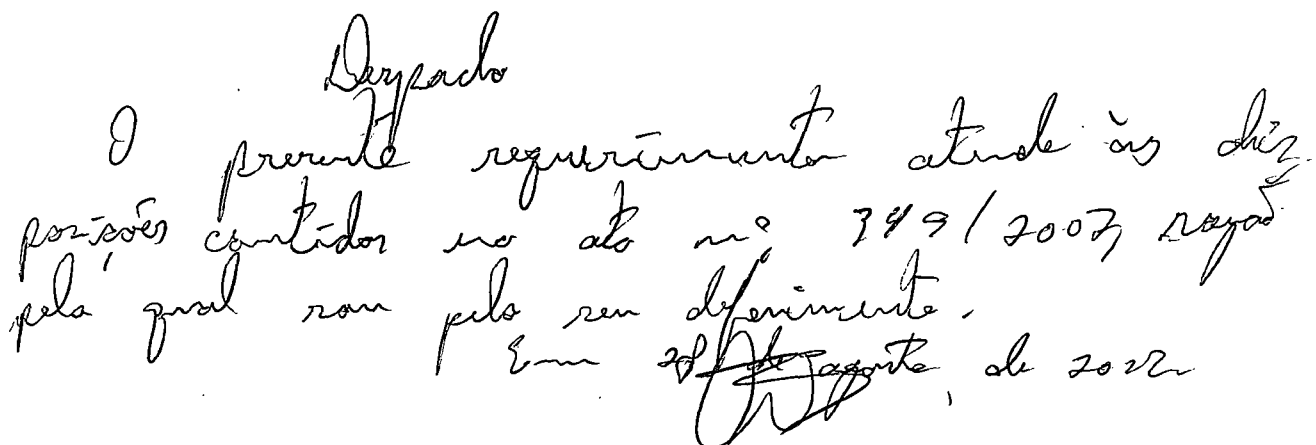 Despacho
O presente requerimento atende às dis-
posições contidas no ato nº 349/2007, razão
pela qual sou pelo seu deferimento.
Em 28 de agosto, de 2022